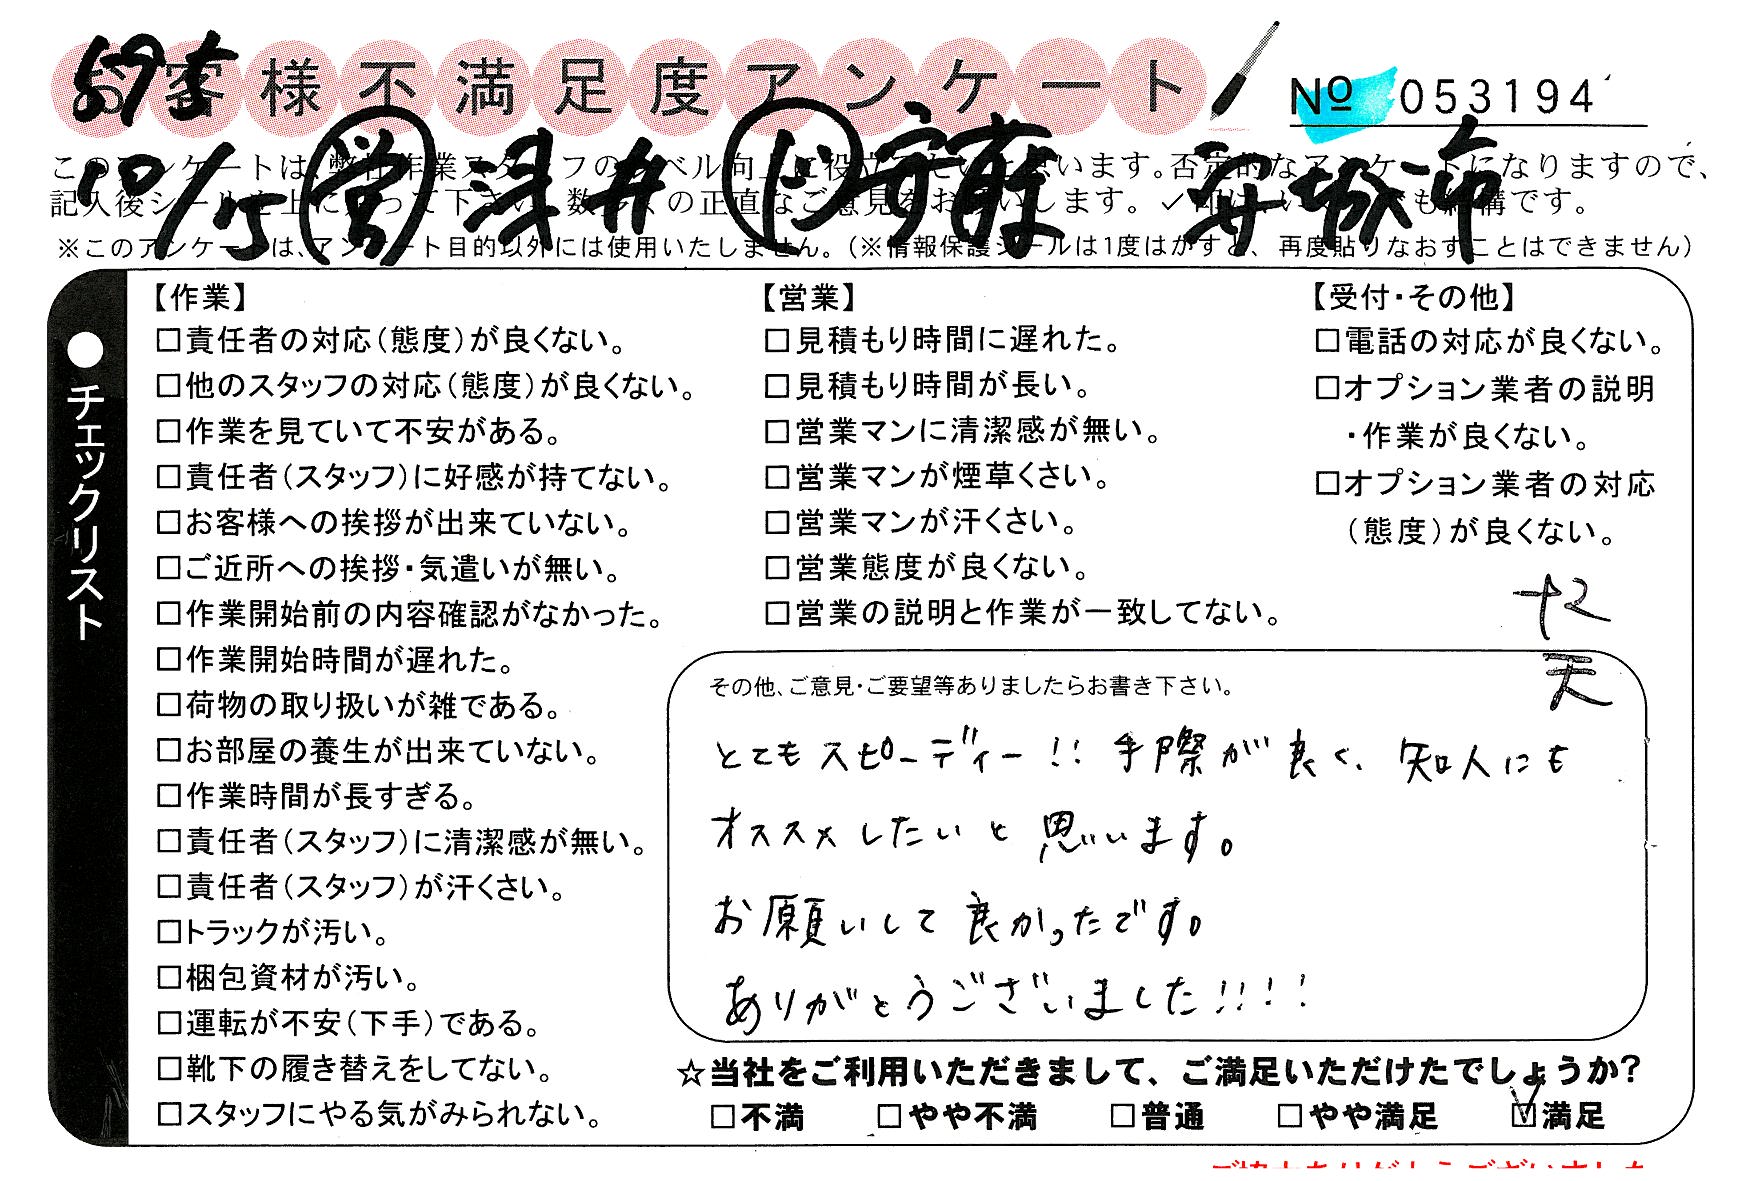 お客様不満足度アンケート
№ 053194
10/15 営 浅井 ド 安城市
このアンケートは、弊社作業スタッフのレベル向上に役立てたいと思います。否定的なアンケートになりますので、
記入後シールを上に貼って下さい。数多くの正直なご意見をお願いします。✓印は、いくつでも結構です。
※このアンケートは、アンケート目的以外には使用いたしません。(※情報保護シールは1度はがすと、再度貼りなおすことはできません)
●チェックリスト
【作業】
□責任者の対応(態度)が良くない。
□他のスタッフの対応(態度)が良くない。
□作業を見ていて不安がある。
□責任者(スタッフ)に好感が持てない。
□お客様への挨拶が出来ていない。
□ご近所への挨拶・気遣いが無い。
□作業開始前の内容確認がなかった。
□作業開始時間が遅れた。
□荷物の取り扱いが雑である。
□お部屋の養生が出来ていない。
□作業時間が長すぎる。
□責任者(スタッフ)に清潔感が無い。
□責任者(スタッフ)が汗くさい。
□トラックが汚い。
□梱包資材が汚い。
□運転が不安(下手)である。
□靴下の履き替えをしてない。
□スタッフにやる気がみられない。
【営業】
□見積もり時間に遅れた。
□見積もり時間が長い。
□営業マンに清潔感が無い。
□営業マンが煙草くさい。
□営業マンが汗くさい。
□営業態度が良くない。
□営業の説明と作業が一致してない。
【受付・その他】
□電話の対応が良くない。
□オプション業者の説明
・作業が良くない。
□オプション業者の対応
(態度)が良くない。
天
その他、ご意見・ご要望等ありましたらお書き下さい。
とてもスピーディー!! 手際が良く、知人にも
オススメしたいと思います。
お願いして良かったです。
ありがとうございました!!!!
☆当社をご利用いただきまして、ご満足いただけたでしょうか?
□不満 □やや不満 □普通 □やや満足 ☑満足
ご協力ありがとうございました